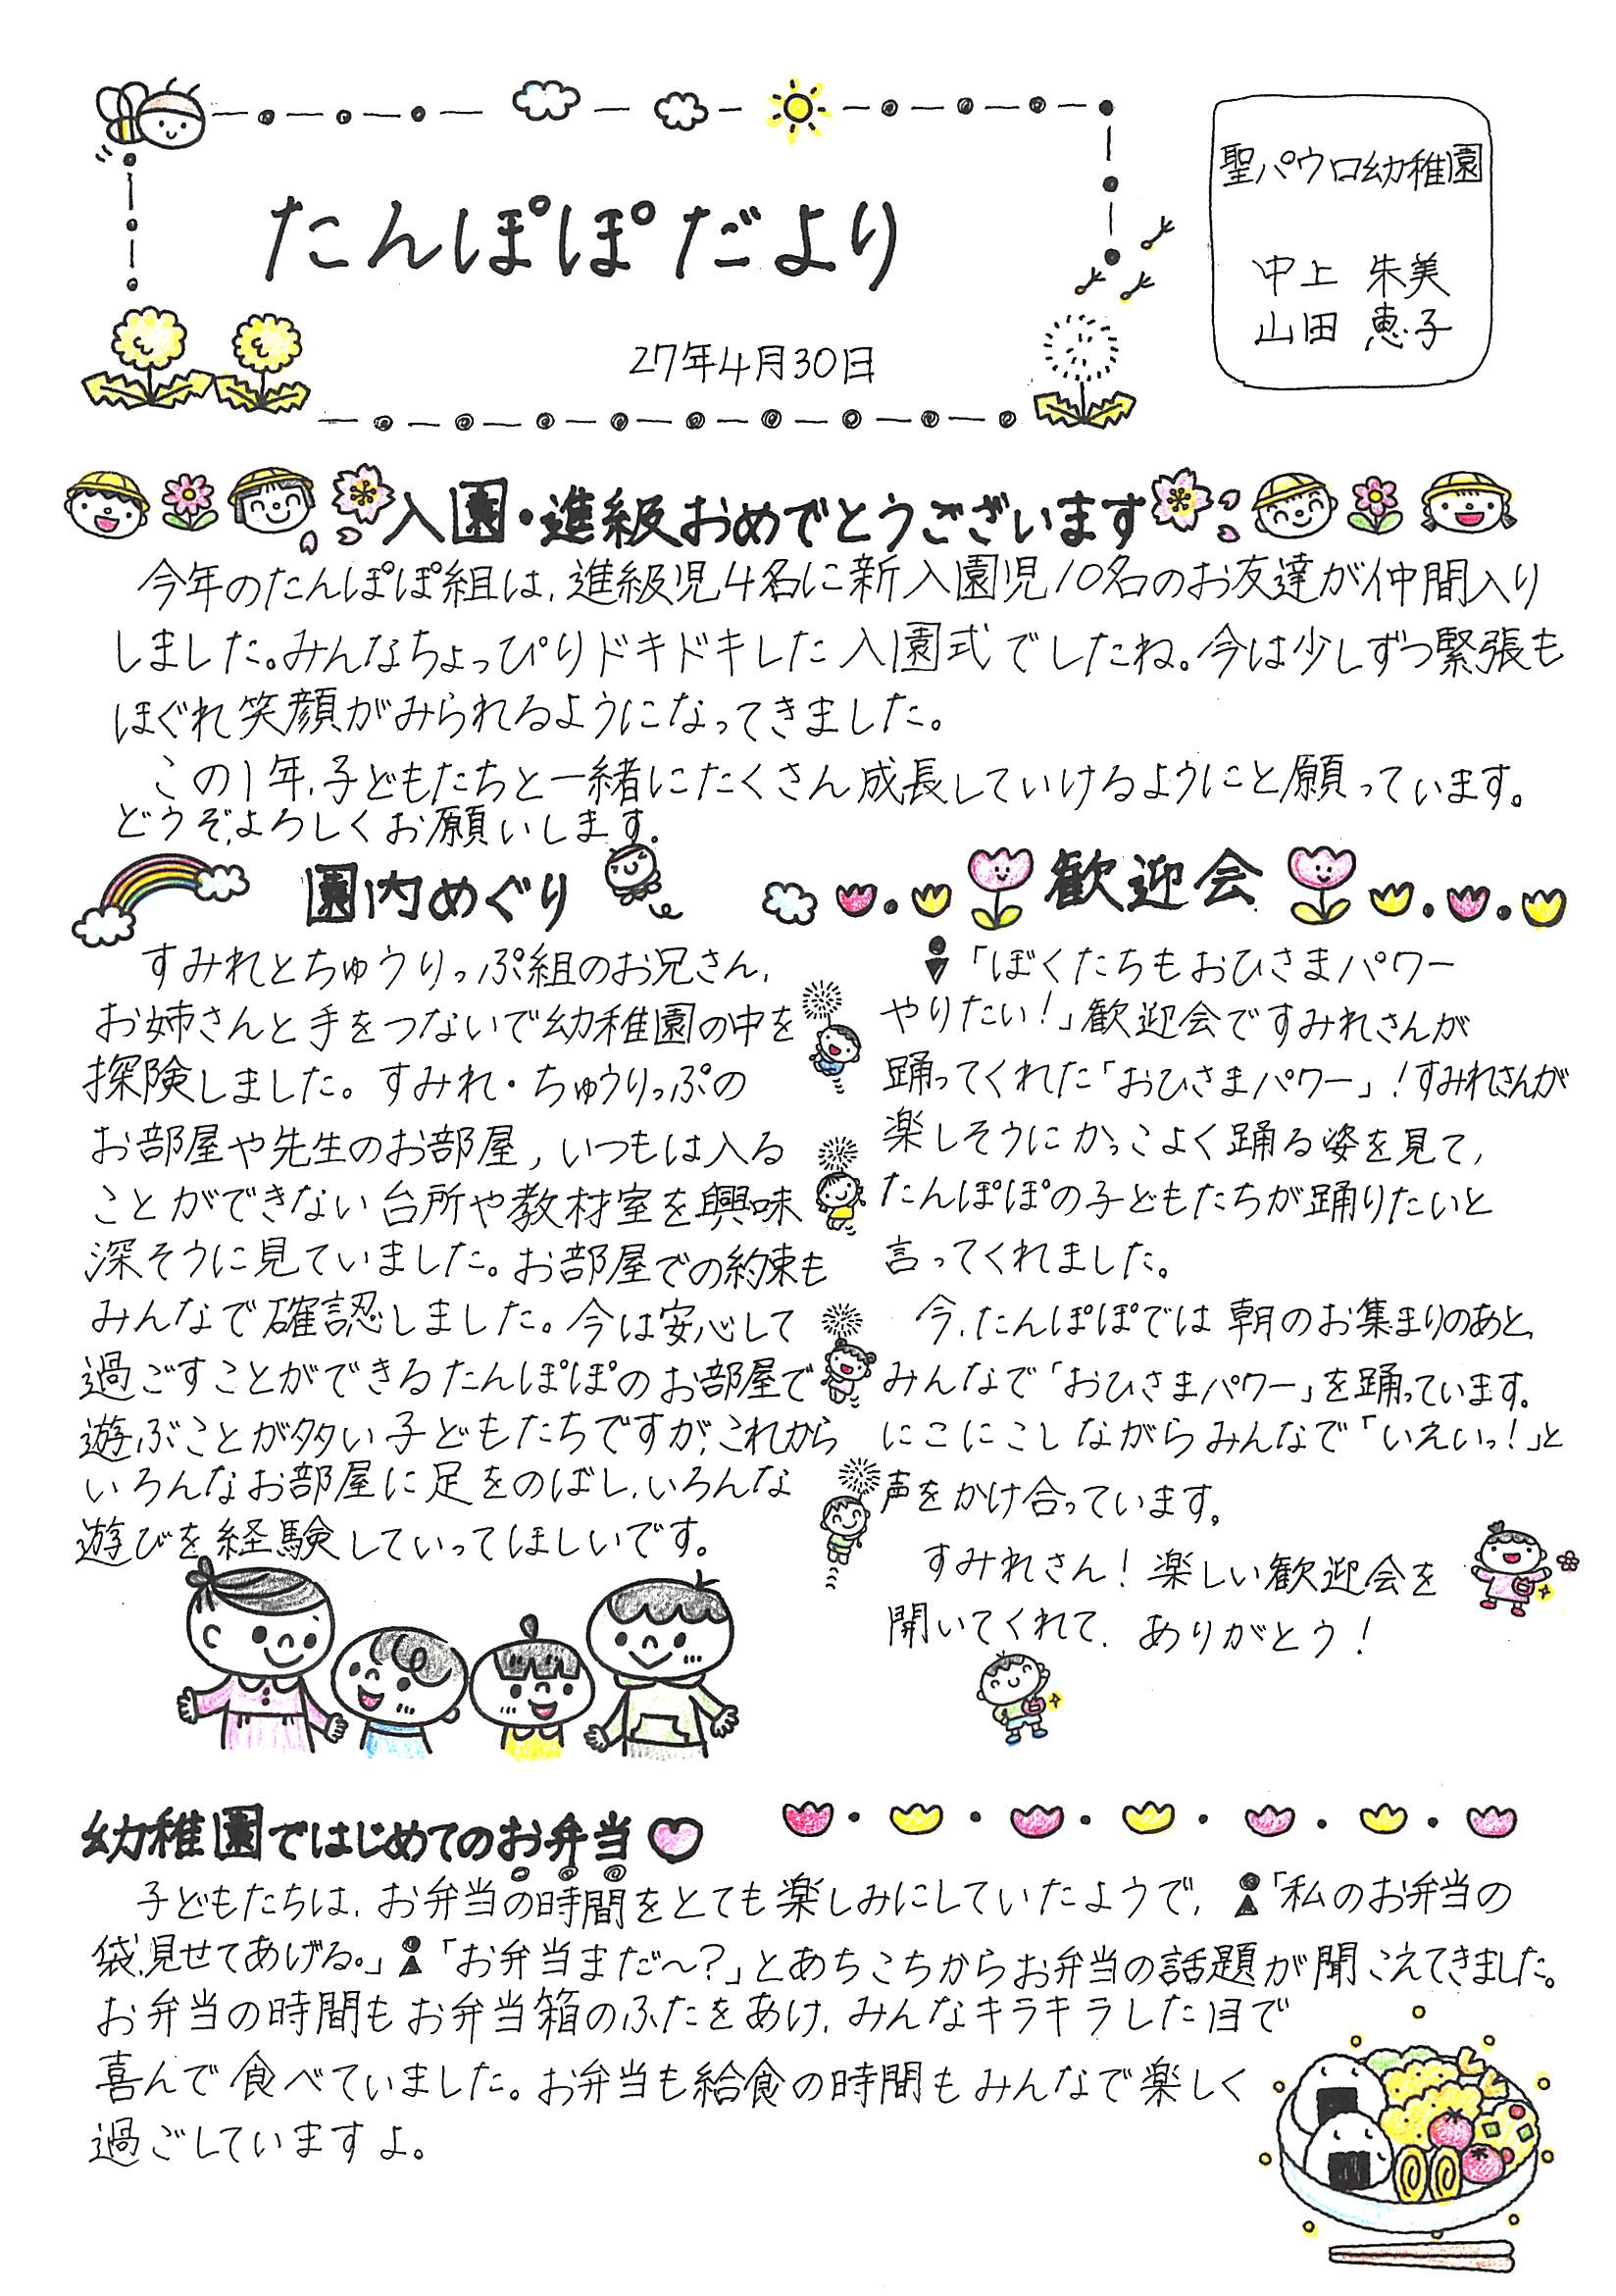 たんぽぽだより
27年4月30日
聖パウロ幼稚園
中上 朱美
山田 恵子
入園・進級おめでとうございます
今年のたんぽぽ組は、進級児4名に新入園児10名のお友達が仲間入り
しました。みんなちょっぴりドキドキした入園式でしたね。今は少しずつ緊張も
ほぐれ笑顔がみられるようになってきました。
この1年、子どもたちと一緒にたくさん成長していけるようにと願っています。
どうぞ、よろしくお願いします。
園内めぐり
すみれとちゅうりっぷ組のお兄さん、
お姉さんと手をつないで幼稚園の中を
探険しました。すみれ・ちゅうりっぷの
お部屋や先生のお部屋, いつもは入る
ことができない台所や教材室を興味
深そうに見ていました。お部屋での約束も
みんなで確認しました。今は安心して
過ごすことができるたんぽぽのお部屋で
遊ぶことが多い子どもたちですが、これから
いろんなお部屋に足をのばし、いろんな
遊びを経験していってほしいです。
歓迎会
「ぼくたちもおひさまパワー
やりたい!」歓迎会ですみれさんが
踊ってくれた「おひさまパワー」!すみれさんが
楽しそうにかっこよく踊る姿を見て,
たんぽぽの子どもたちが踊りたいと
言ってくれました。
今、たんぽぽでは朝のお集まりのあと、
みんなで「おひさまパワー」を踊っています。
にこにこしながらみんなで「いえいっ!」と
声をかけ合っています。
すみれさん!楽しい歓迎会を
開いてくれて、ありがとう!
幼稚園ではじめてのお弁当
子どもたちは、お弁当の時間をとても楽しみにしていたようで,「私のお弁当の
袋、見せてあげる。」「お弁当まだ〜?」とあちこちからお弁当の話題が聞こえてきました。
お弁当の時間もお弁当箱のふたをあけ、みんなキラキラした目で
喜んで食べていました。お弁当も給食の時間もみんなで楽しく
過ごしていますよ。